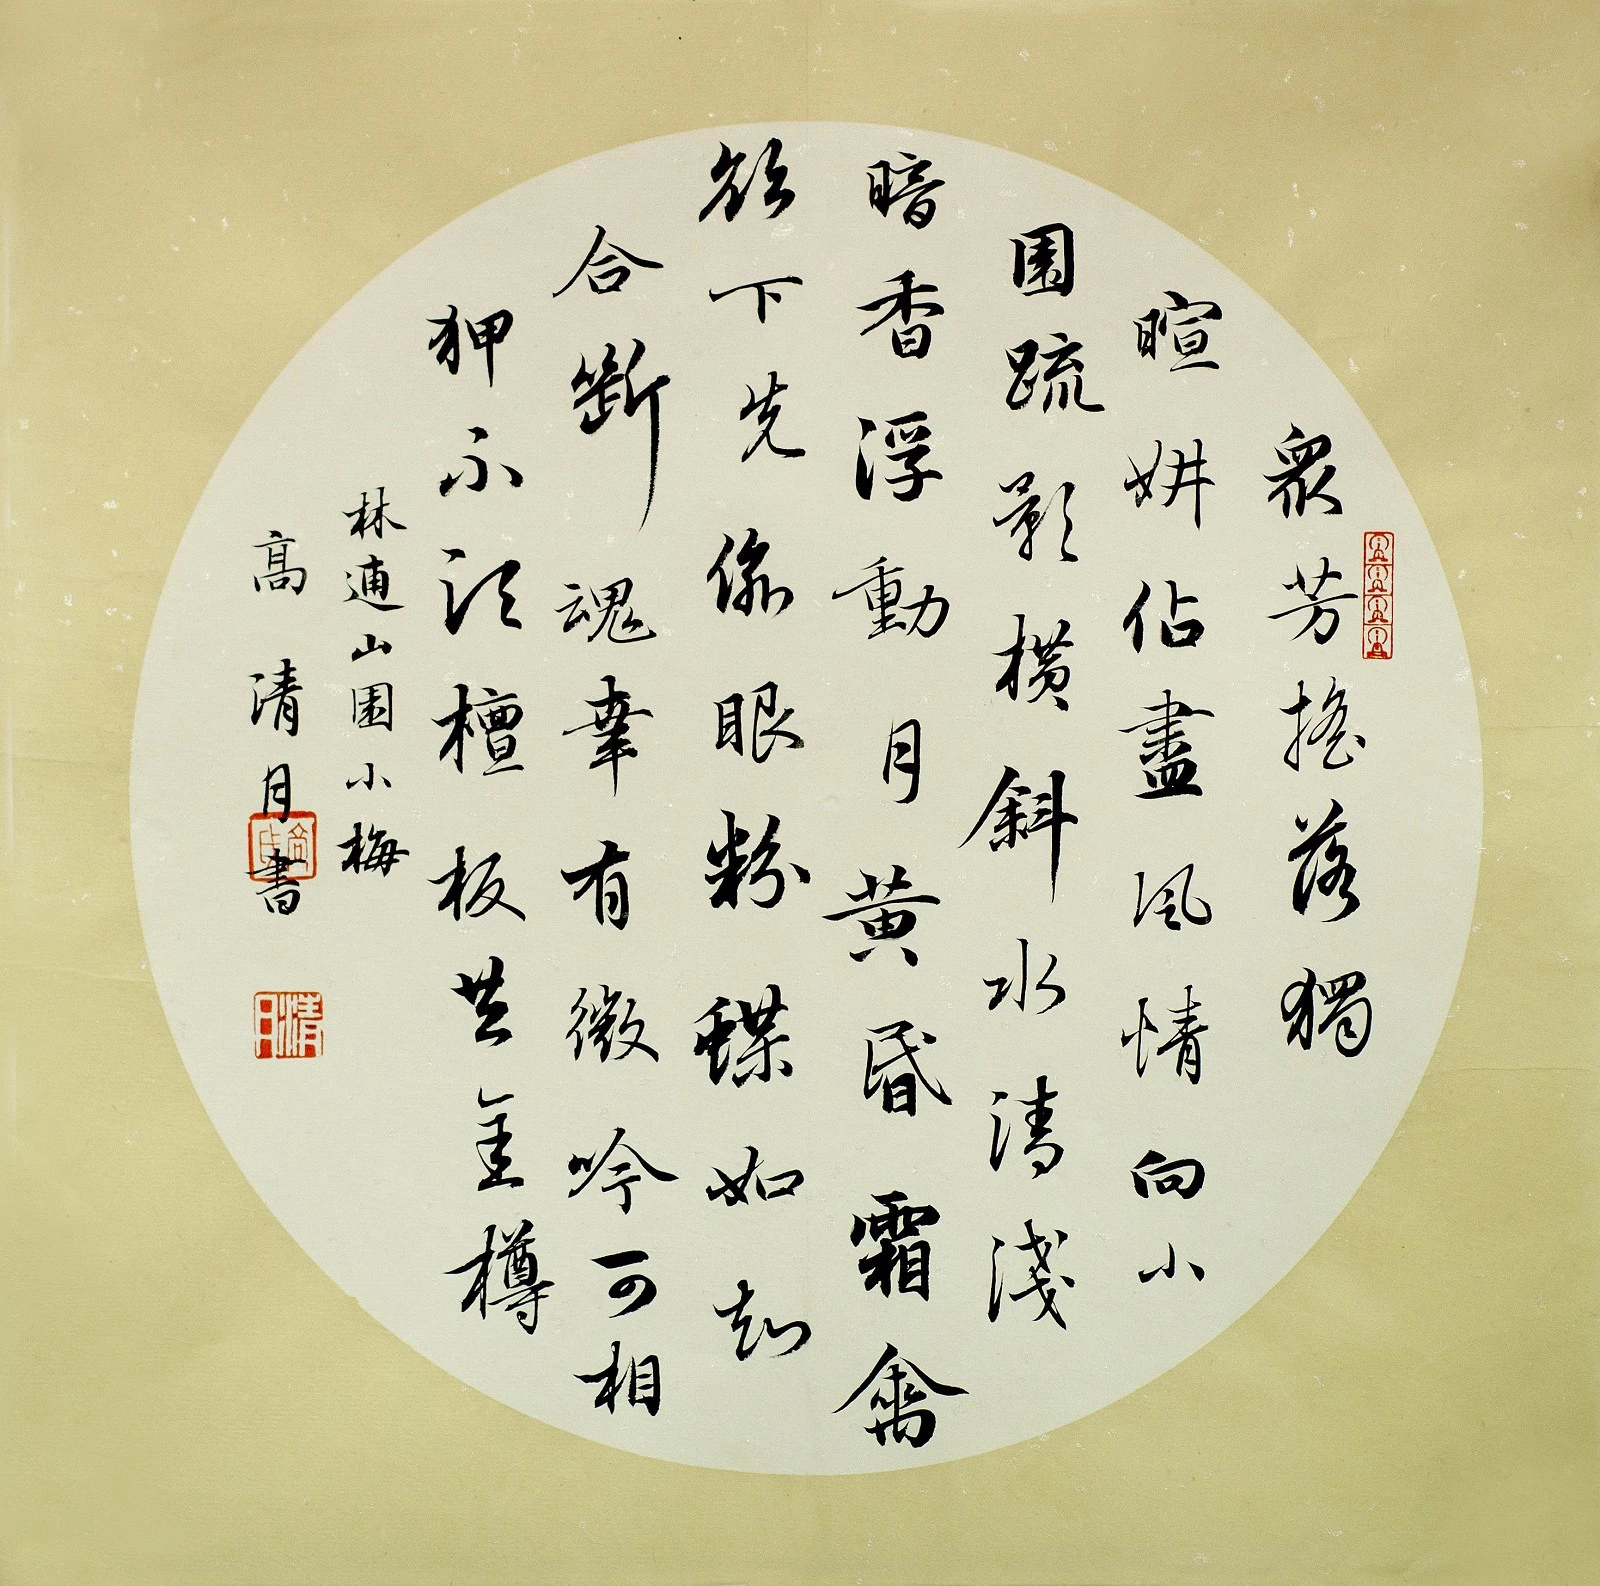 眾芳搖落獨
暄妍佔盡風情向小
園疏影橫斜水清淺
暗香浮動月黃昏霜禽
欲下先偷眼粉蝶如知
合斷魂幸有微吟可相
狎不須檀板共金樽
林逋山園小梅
高清月書
高氏
清月